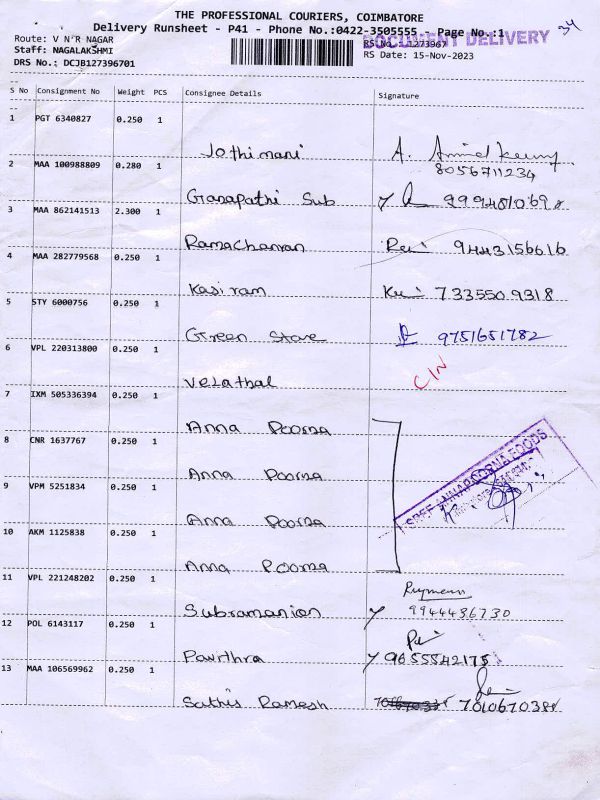 THE PROFESSIONAL COURIERS, COIMBATORE
34
Delivery Runsheet - P41 - Phone No.:0422-3505555 Page No.:1
DOCUMENT DELIVERY
Route: V N R NAGAR
RS No.: 1273967
Staff: NAGALAKSHMI
RS Date: 15-Nov-2023
DRS No.: DCJB127396701
S No Consignment No Weight PCS Consignee Details Signature
1 PGT 6340827 0.250 1
Jothimani A.
8056711234
2 MAA 100988809 0.280 1
Ganapathi Sub
3 MAA 862141513 2.300 1
Ramachanran 9443156616
4 MAA 282779568 0.250 1
Kasiram 7335509318
5 STY 6000756 0.250 1
Green Stare 9751651782
6 VPL 220313800 0.250 1
Velathal CIN
7 IXM 505336394 0.250 1
Anna Poorna
8 CNR 1637767 0.250 1
Anna Poorna
SREE ANNAPOORNA FOODS
9 VPM 5251834 0.250 1
Anna Poorna
10 AKM 1125838 0.250 1
Anna Poorna
11 VPL 221248202 0.250 1
Subramanion 9944436730
12 POL 6143117 0.250 1
Pavithra 9655542175
13 MAA 106569962 0.250 1
Sathis Ramesh 7010670381